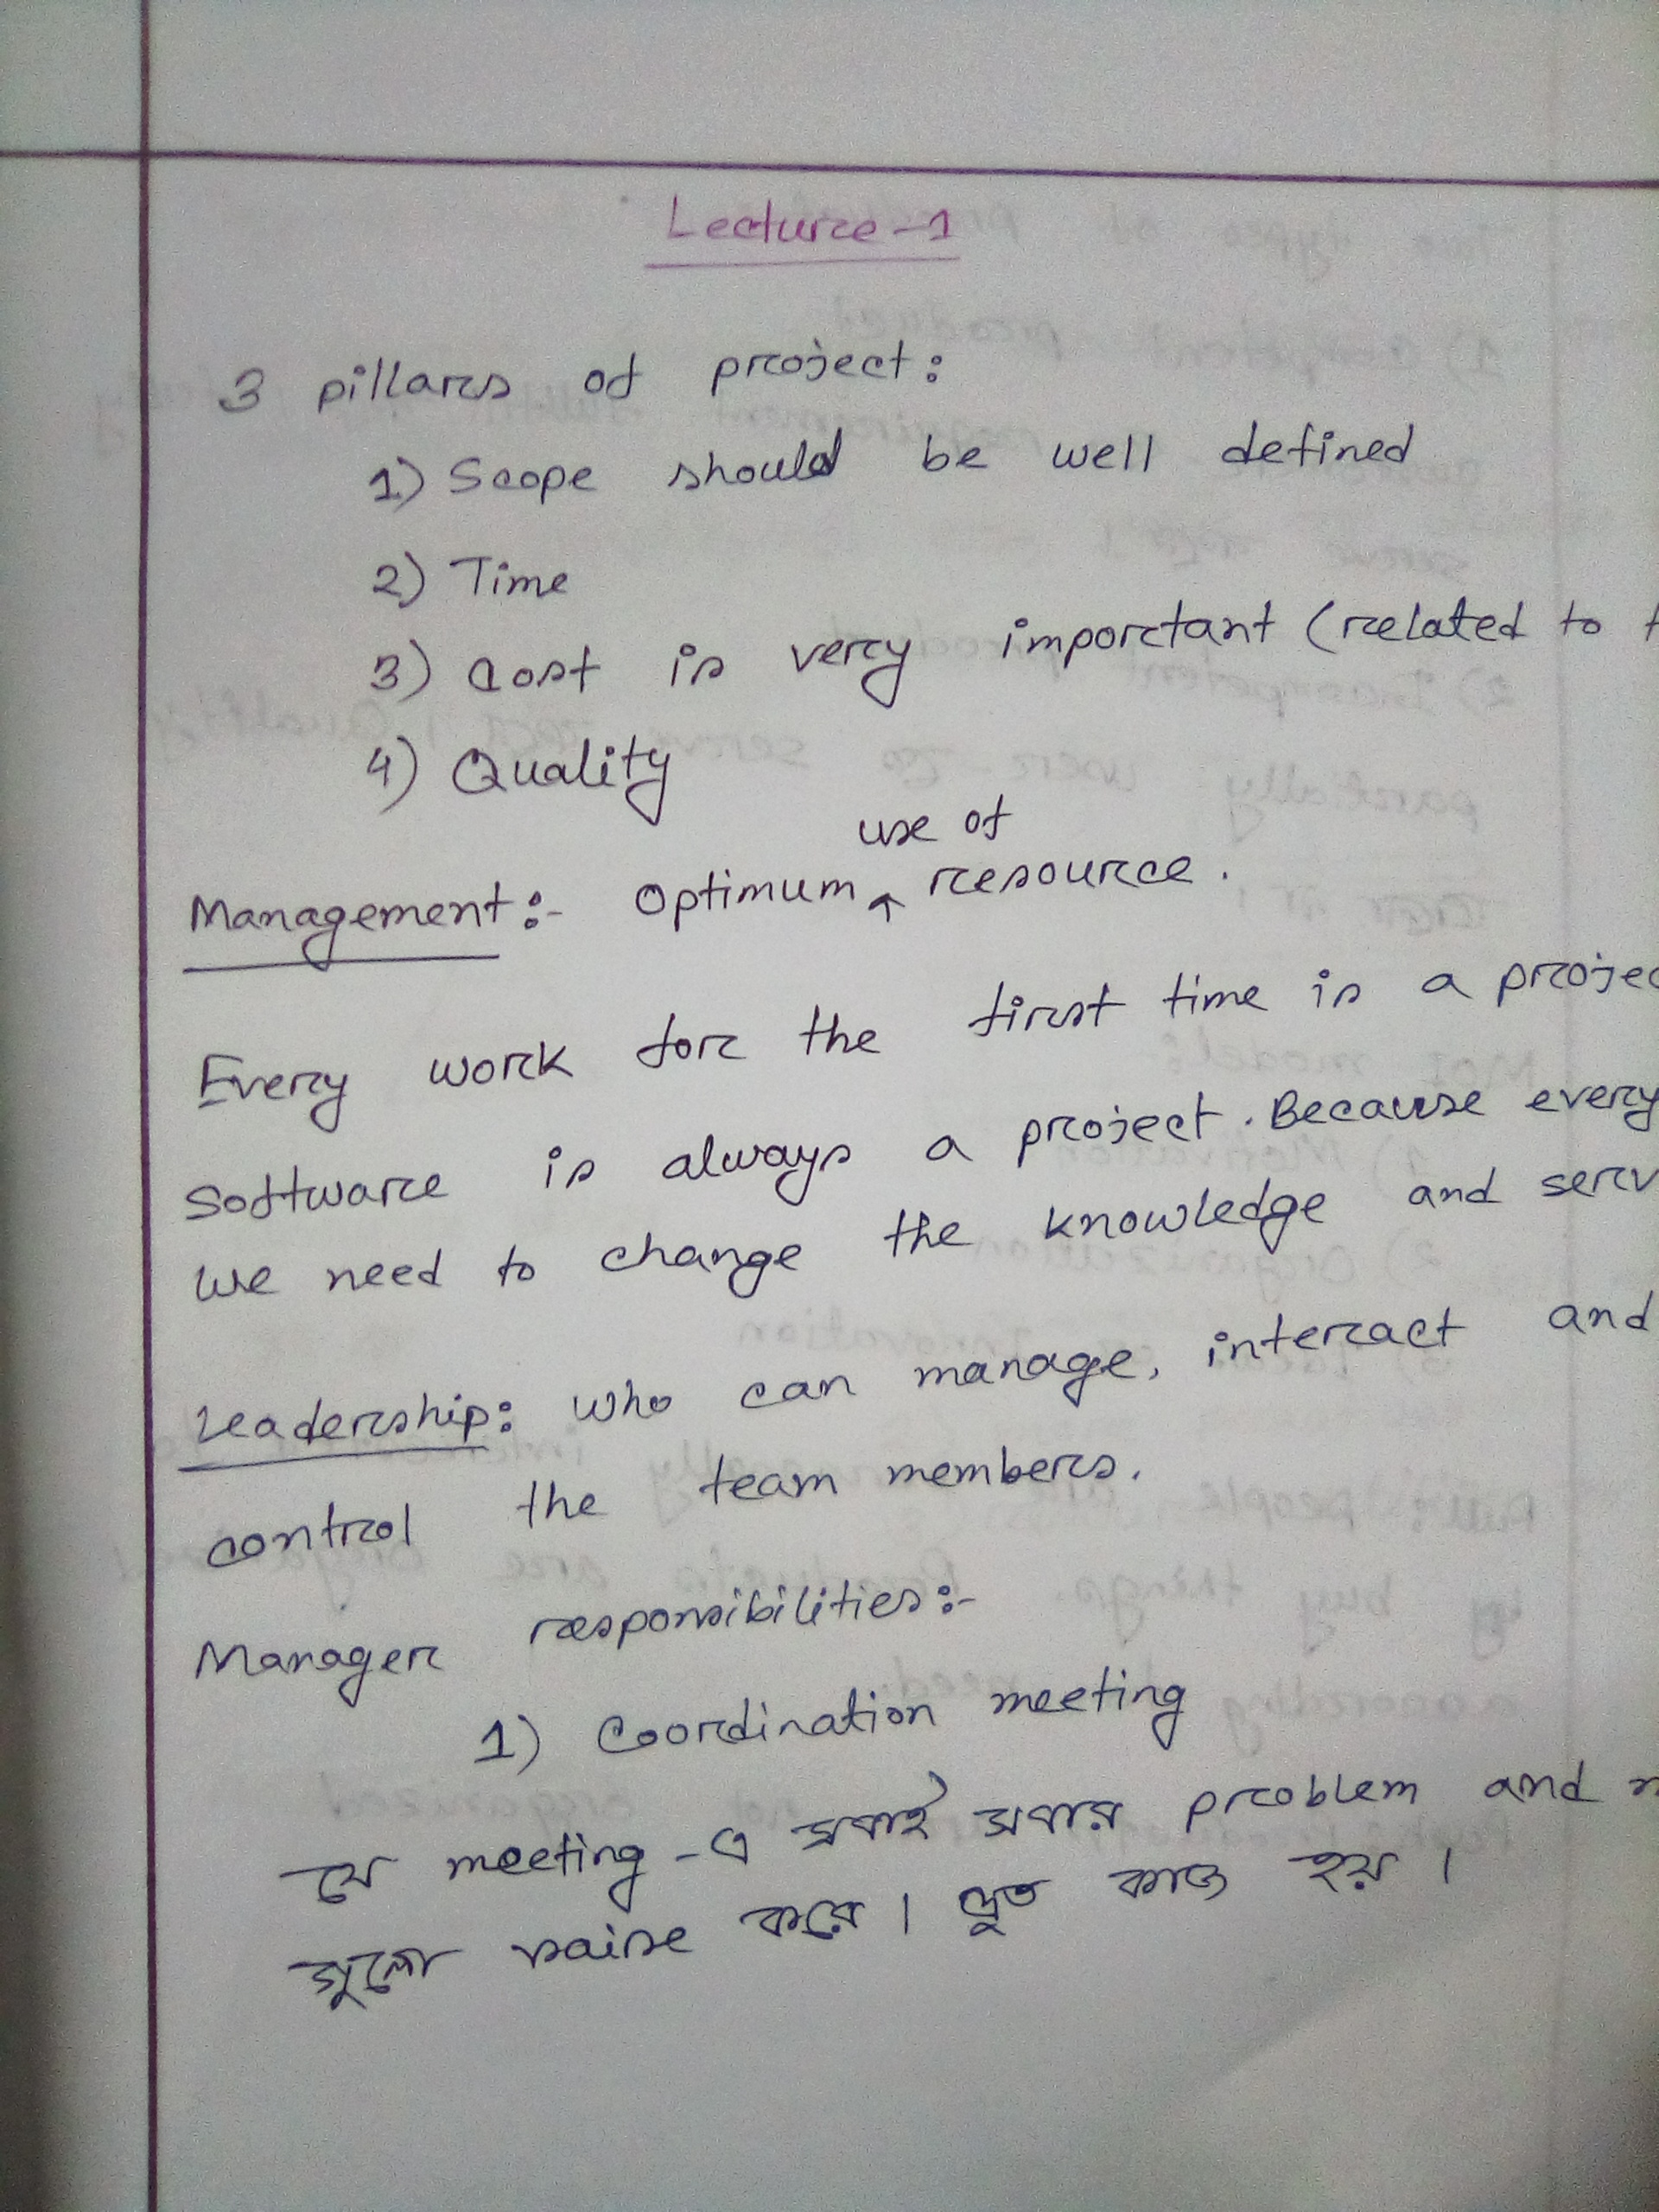 Lecture-1
3 pillars of project:
1) Scope should be well defined
2) Time
3) Cost is very important (related to
4) Quality
use of
Management:- Optimum ^ resource.
Every work for the first time is a projec
Software is always a project. Because every
we need to change the knowledge and serv
Leadership: who can manage, interact and
control the team members.
Manager responsibilities:-
1) Coordination meeting
যে meeting-এ সবাই সবার problem and
গুলো raise করে। দ্রুত কাজ হয়।